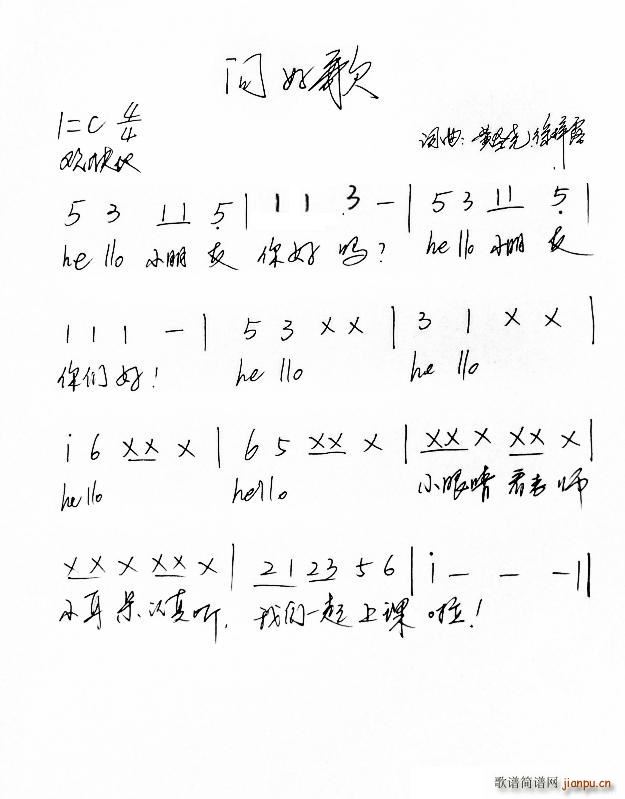 问好歌
1=C 4/4
欢快地 词曲：
5 3 1 1 5̣ | 1 1 3 - | 5 3 1 1 5̣ |
hello 小朋友 你好吗？ hello 小朋友
1 1 1 - | 5 3 X X | 3 1 X X |
你们好！ hello hello
i 6 XX X | 6 5 XX X | XX X XX X |
hello hello 小眼睛 看老师
XX X XX X | 2 1 2 3 5 6 | i - - - ||
小耳朵认真听，我们一起上课啦！
歌谱简谱网 jianpu.cn